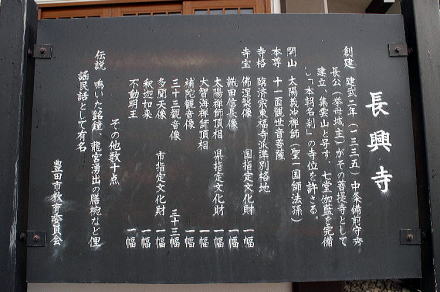 長興寺
創建 建武二年(一三三五年)中条備前守秀
長公(挙母城主)がその菩提寺として
建立。集雲山と号す。七堂伽藍を完備
し「本朝名刹」の寺位を許さる。
開山 太陽義冲禅師(聖一国師法孫)
本尊 十一面観世音菩薩
寺格 臨済宗東福寺派準別格地
寺宝 佛涅槃像 国指定文化財 一幅
織田信長像 国指定文化財 一幅
太陽禅師頂相 県指定文化財 一幅
大智海禅師頂相 一幅
補陀観音像 一幅
三十三観音像 三十三幅
多聞天像 市指定文化財 一幅
釈迦如来 一幅
不動明王 一幅
その他数十点
伝説 鳴いた銘鐘、龍宮湧出の膳椀など俚
謡民話として有名
豊田市教育委員会